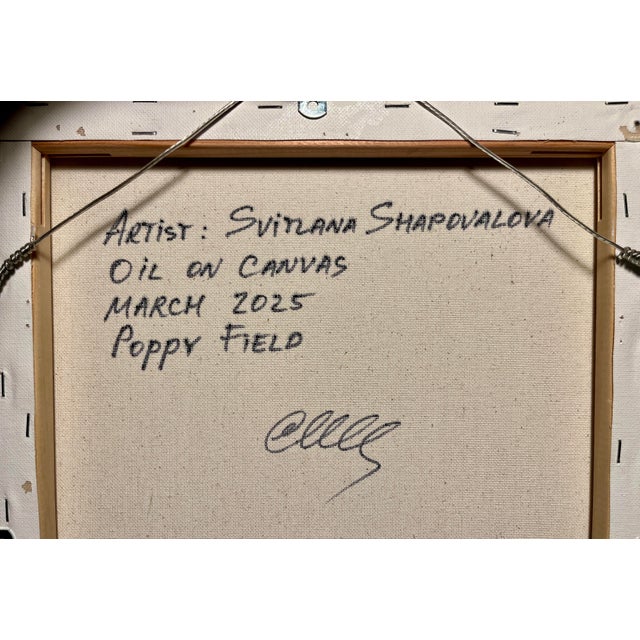 Artist: Svitlana Shapovalova
Oil on canvas
March 2025
Poppy Field